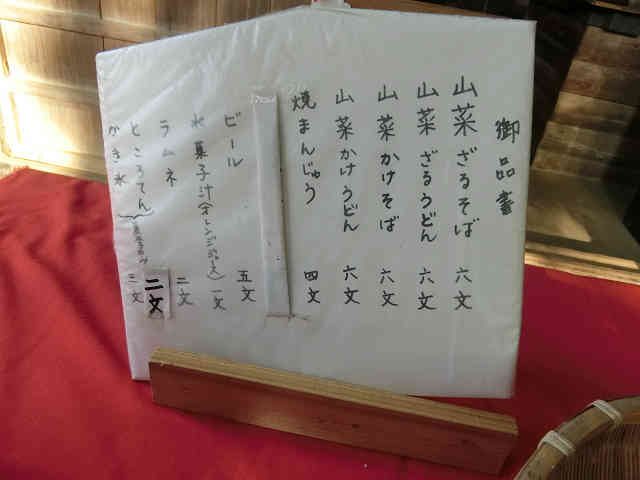 御品書
山菜ざるそば 六文
山菜ざるうどん 六文
山菜かけそば 六文
山菜かけうどん 六文
焼まんじゅう 四文
ビール 五文
水菓子汁(オレンジジュース) 一文
ラムネ 二文
ところてん 二文
かき氷 三文